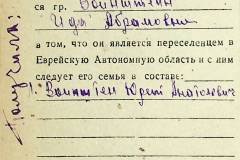 ся гр. Вайнштейн
Ида Абрамовна
в том, что он является переселенцем в
Еврейскую Автономную область и с ним
следует его семья в составе:
1. Юрий Анатольевич
Получила: